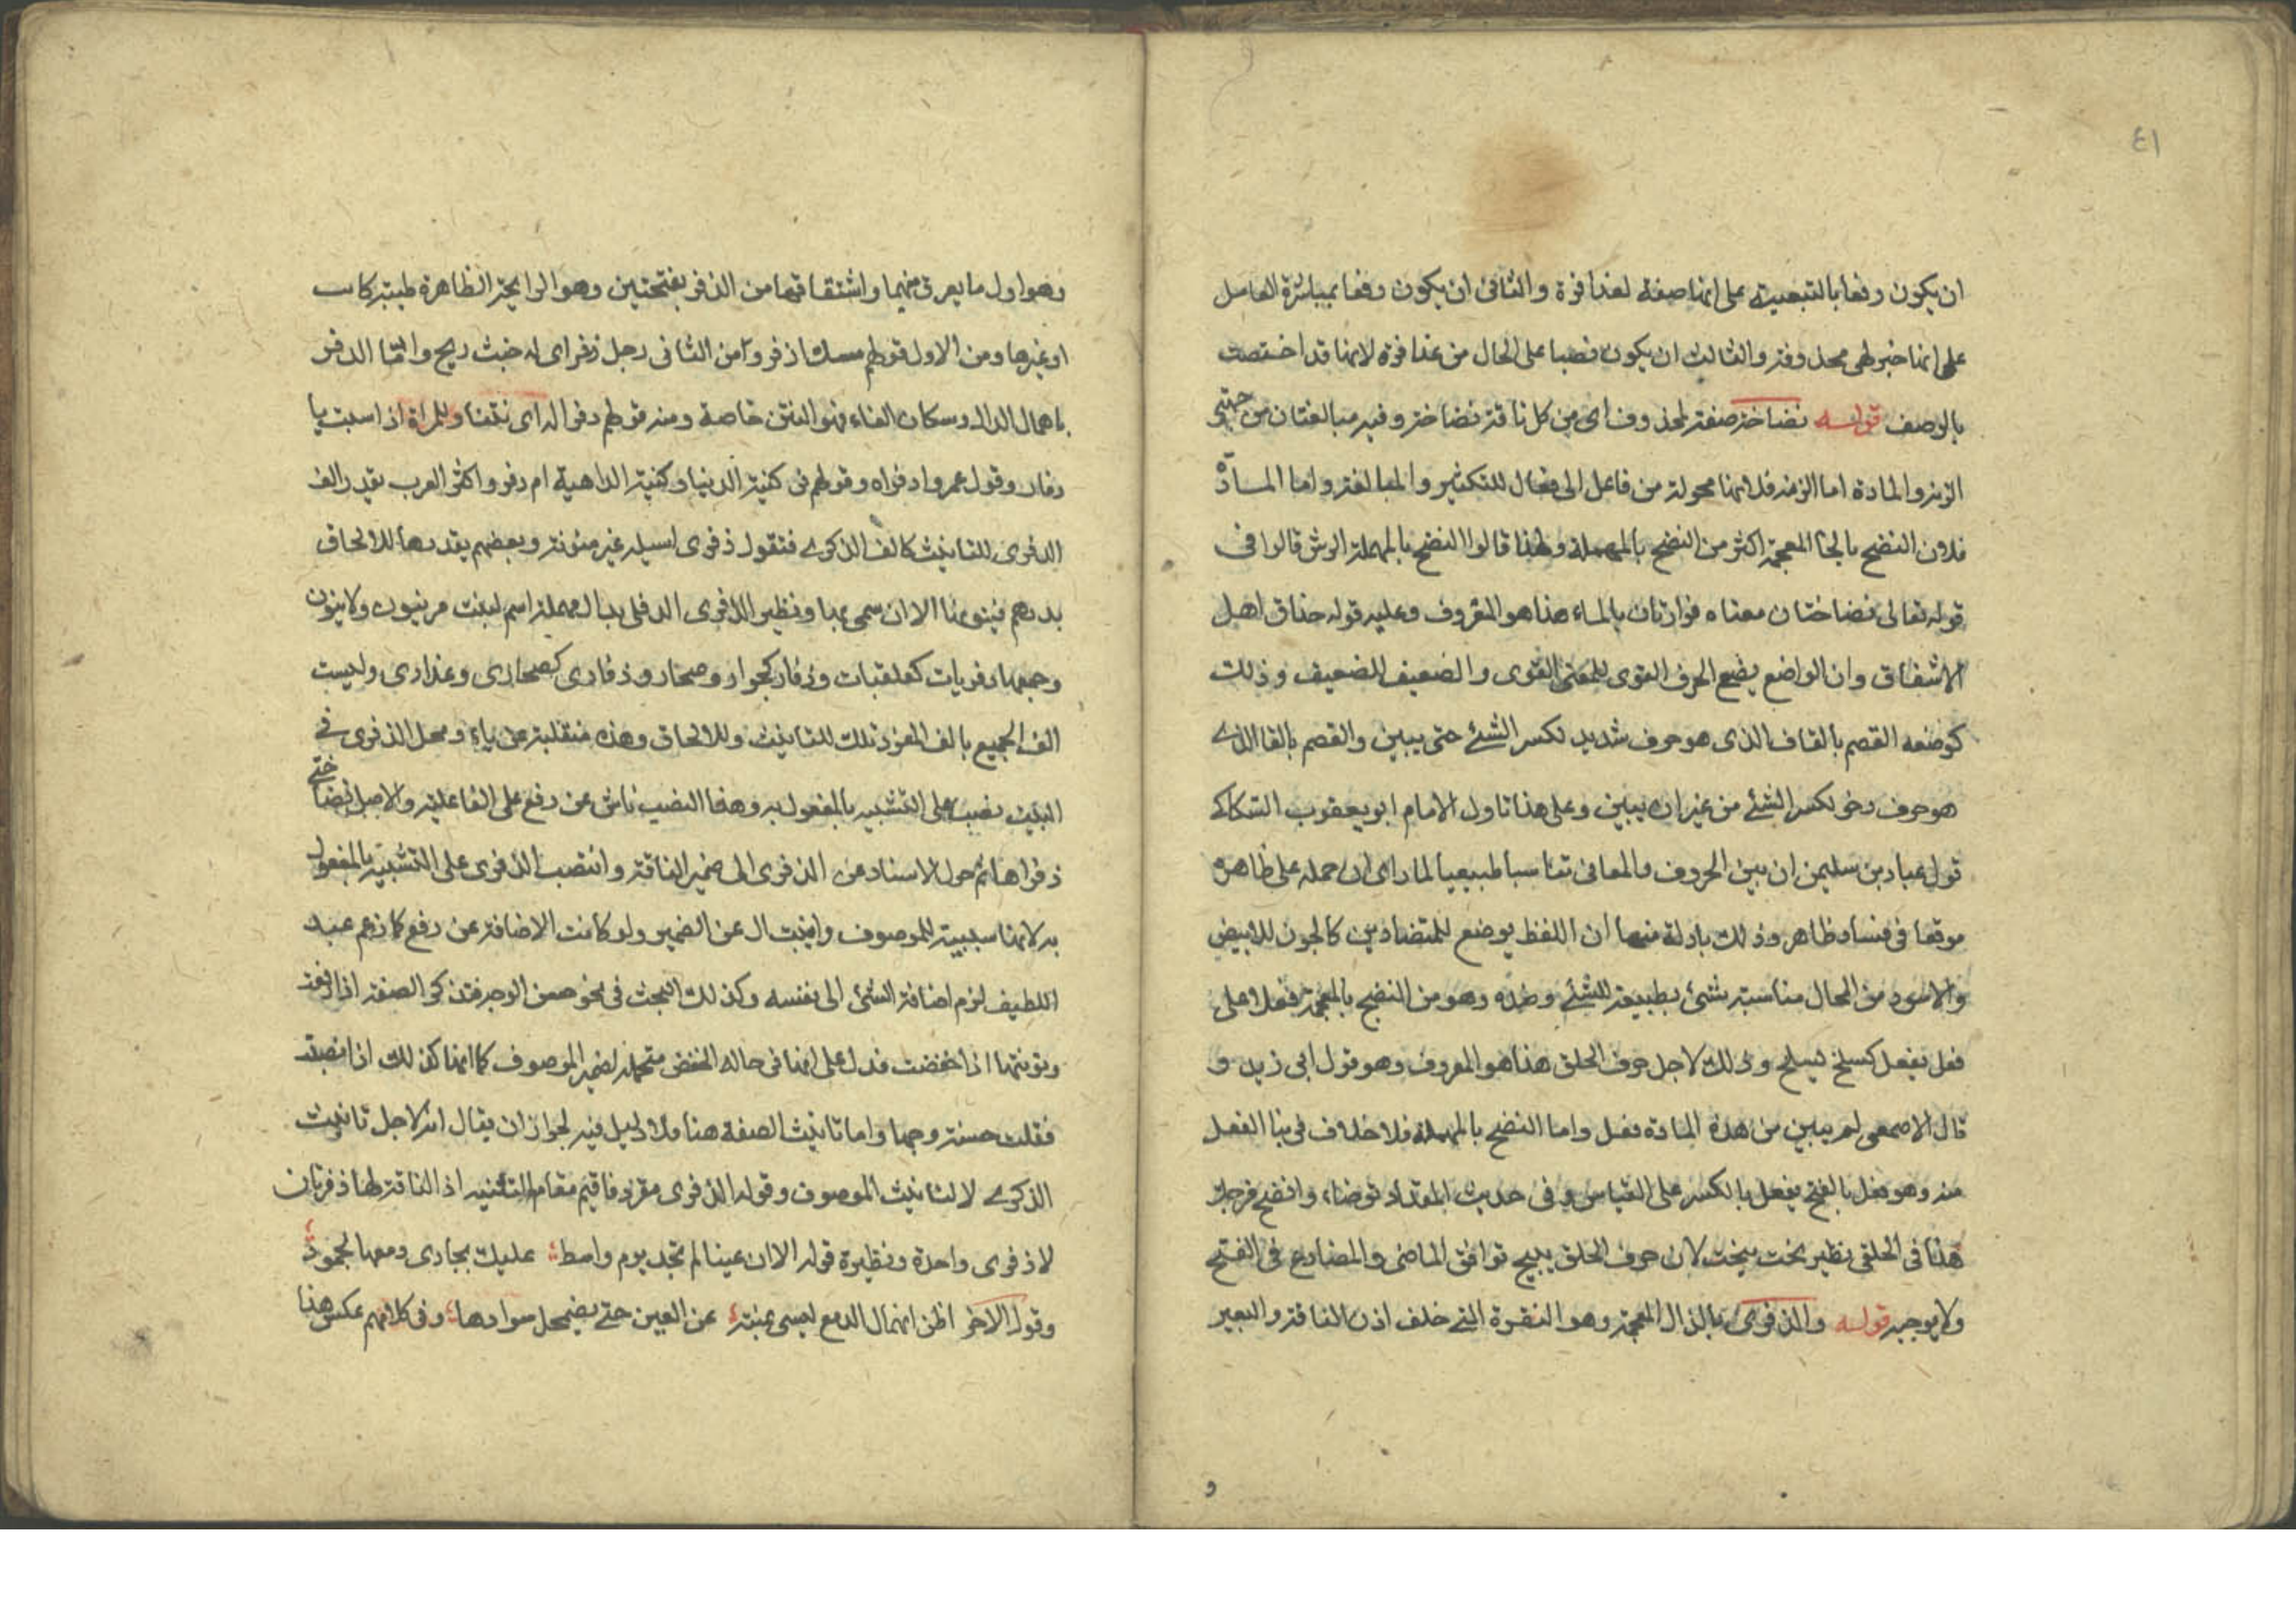 ٤١
ان يكون رفعا بالتبعية على انها صفة لعذافرة والثانى ان يكون رفعا بمباشرة العامل
على انها خبر لهى محذوفة والثالث ان يكون نصبا على الحال من عذافرة لانها قد اختصت
بالوصف قوله نضاخة صفة لمحذوف اى من كل ناقة نضاخة وفيه مبالغتان من جهتى
الزنة والمادة اما الزنة فلانها محولة من فاعل الى فعال للتكثير والمبالغة واما المادة
فلان النضخ بالخا المعجمة اكثر من النضح بالمهملة ولهذا قالوا النضح بالمهملة الرش قالوا فى
قوله تعالى نضاختان معناه فوارتان بالماء هذا هو المعروف وعليه قوله حذاق اهل
الاشتقاق وان الواضع يضع الحرف القوى للمعنى القوى والضعيف للضعيف وذلك
كوضعه القصم بالقاف الذى هو حرف شديد لكسر الشئ حتى يبين والفصم بالفا الذى
هو حرف رخو لكسر الشئ من غير ان يبين وعلى هذا تاول الامام ابو يعقوب السكاكى
قول عباد بن سليمن ان بين الحروف والمعانى تناسبا طبيعيا لما راى ان حمله على ظاهره
موقعا فى فساد ظاهر وذلك بادلة منها ان اللفظ يوضع للمتضادين كالجون للابيض
والاسود من المحال مناسبة شئ بطبيعته للشئ وضده وهو من النضخ بالمعجمة فعلا على
فعل يفعل كسلخ يسلخ وذلك لاجل حرف الحلق هذا هو المعروف وهو قول ابى زيد و
قال الاصمعى لم يبين من هذه المادة فعل واما النضح بالمهملة فلا خلاف فى بنا الفعل
منه وهو فعل بالفتح يفعل بالكسر على القياس وفى حديث المقداد توضاء وانضح فرجك
هذا فى الحلقى نظير نحت ينحت لان حرف الحلق يبيح توافق الماضى والمضارع فى الفتح
ولا يوجبه قوله والذفرى بالذال المعجمة وهو النقرة التى خلف اذن الناقة والبعير
و
وهو اول ما يعرق منهما واشتقاقهما من الذفر بفتحتين وهو الرايحة الظاهرة طيبة كانت
او غيرها ومن الاول قولهم مسك اذفر ومن الثانى رجل ذفر اى له خبث ريح واما الدفر
باهمال الدال وسكان الفاء فهو النتن خاصة ومنه قولهم دفرا له اى نتنا وللمراة اذا سبت يا
دفار وقول عمر وادفراه وقولهم فى كنية الدنيا وكنية الداهية ام دفر واكثر العرب يقدر الف
الذفرى للتانيث كالف الذكرى فتقول ذفرى اسيلة غير منونة وبعضهم يقدرها للالحاق
بدرهم فينونها الا ان سمى بها ونظير الذفرى الدفلى بدال مهملة اسم لنبت مر ينون ولا ينون
وجمعها ذفريات كعلقيات وذفار كجوار وصحار وذفارى كصحارى وعذارى وليست
الف الجميع بالف المفرد تلك للتانيث وللالحاق وهذه منقلبة عن ياء ومحل الذفرى فى
البيت نصب على التشبيه بالمفعول به وهذا النصب ناش عن رفع على الفاعلية والاصل نضاخة
ذفراها ثم حول الاسناد عن الذفرى الى ضمير الناقة وانتصب الذفرى على التشبيه بالمفعول
به لانها سببية للموصوف وانيبت ال عن الضمير ولو كانت الاضافة عن رفع كما زعم عبد
اللطيف لزم اضافة الشئ الى نفسه وكذلك البحث فى نحو حسن الوجه فتذكر الصفة اذا رفعت
وتونثها اذا خفضت فدل على انها فى حاله الخفض متحملة لضمير الموصوف كما انها كذلك اذا نصبت
فقلت حسنة وجها واما تانيث الصفة هنا فلا دليل فيه لجواز ان يقال انه لاجل تانيث
الذكرى لا لتانيث الموصوف وقوله الذفرى مفرد فاقيم مقام التثنية اذ الناقة لها ذفريان
لا ذفرى واحدة ونظيرة قوله الا ان عينا لم تجد يوم واسط عليك بجارى دمعها لجمود
وقول الاخر اظن انهمال الدمع ليس بمنته عن العين حتى يضمحل سوادها وفى كلامهم عكس هذا